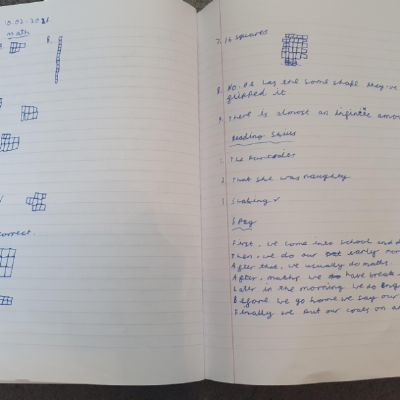 0.02.2021
Math
8.
correct.
7. 16 squares
8. No. As has the same shape they've
flipped it
9. There is almost an infinite
Reading skills
1. The
2. That she was naughty
3.
SPag
First, we come into school and
Then, we do our early
After that, we usually do maths
After, maths we have break
Later in the morning we do
Before we go home we say our
Finally we put our coats on